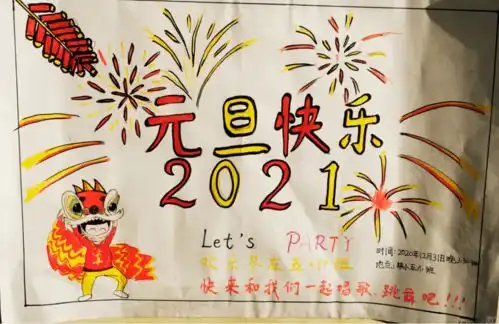 元旦快乐
2021
Let's PARTY
欢乐尽在五
时间:2020年12月31日晚上
地点:
班
快来和我们一起唱歌、跳舞吧!!!